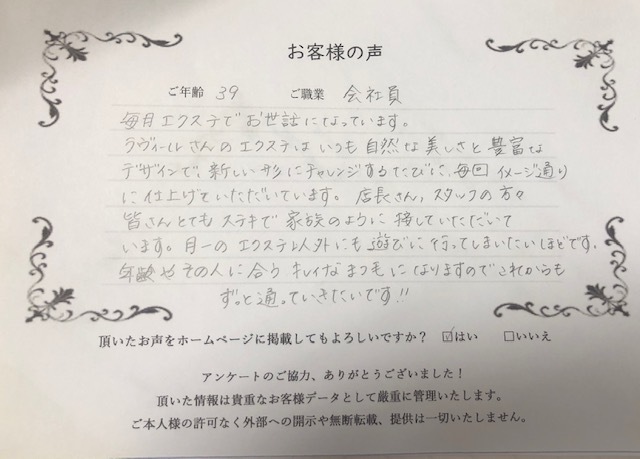 お客様の声
ご年齢 39 ご職業 会社員
毎月エクステでお世話になっています。
ラヴィールさんのエクステはいつも自然な美しさと豊富な
デザインで、新しい形にチャレンジするたびに、毎回イメージ通り
に仕上げていただいています。店長さん、スタッフの方々
皆さんとてもステキで家族のように接していただいて
います。月一のエクステ以外にも遊びに行ってしまいたいほどです。
年齢やその人に合うキレイなまつ毛になりますのでこれからも
ずっと通っていきたいです!!
頂いたお声をホームページに掲載してもよろしいですか? ☑はい □いいえ
アンケートのご協力、ありがとうございました!
頂いた情報は貴重なお客様データとして厳重に管理いたします。
ご本人様の許可なく外部への開示や無断転載、提供は一切いたしません。